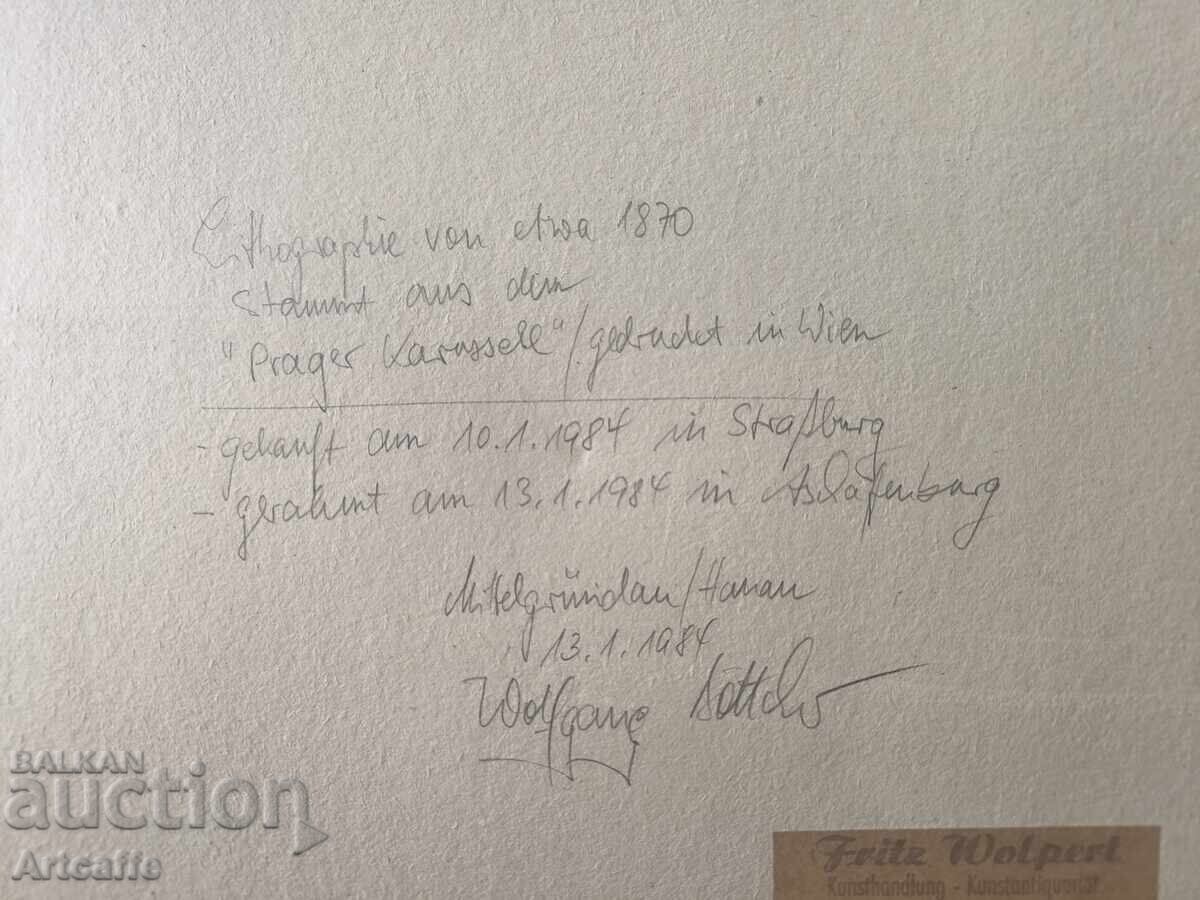 Lithographie von etwa 1870
stammt aus dem
"Prager Karussell" / gedruckt in Wien
- gekauft am 10.1.1984 in Straßburg
- gerahmt am 13.1.1984 in Aschaffenburg
Mittelgründau/Hanau
13.1.1984
Wolfgang
BALKAN
auction
Artcaffe
Fritz Wolpert
Kunsthandlung - Kunstantiquariat